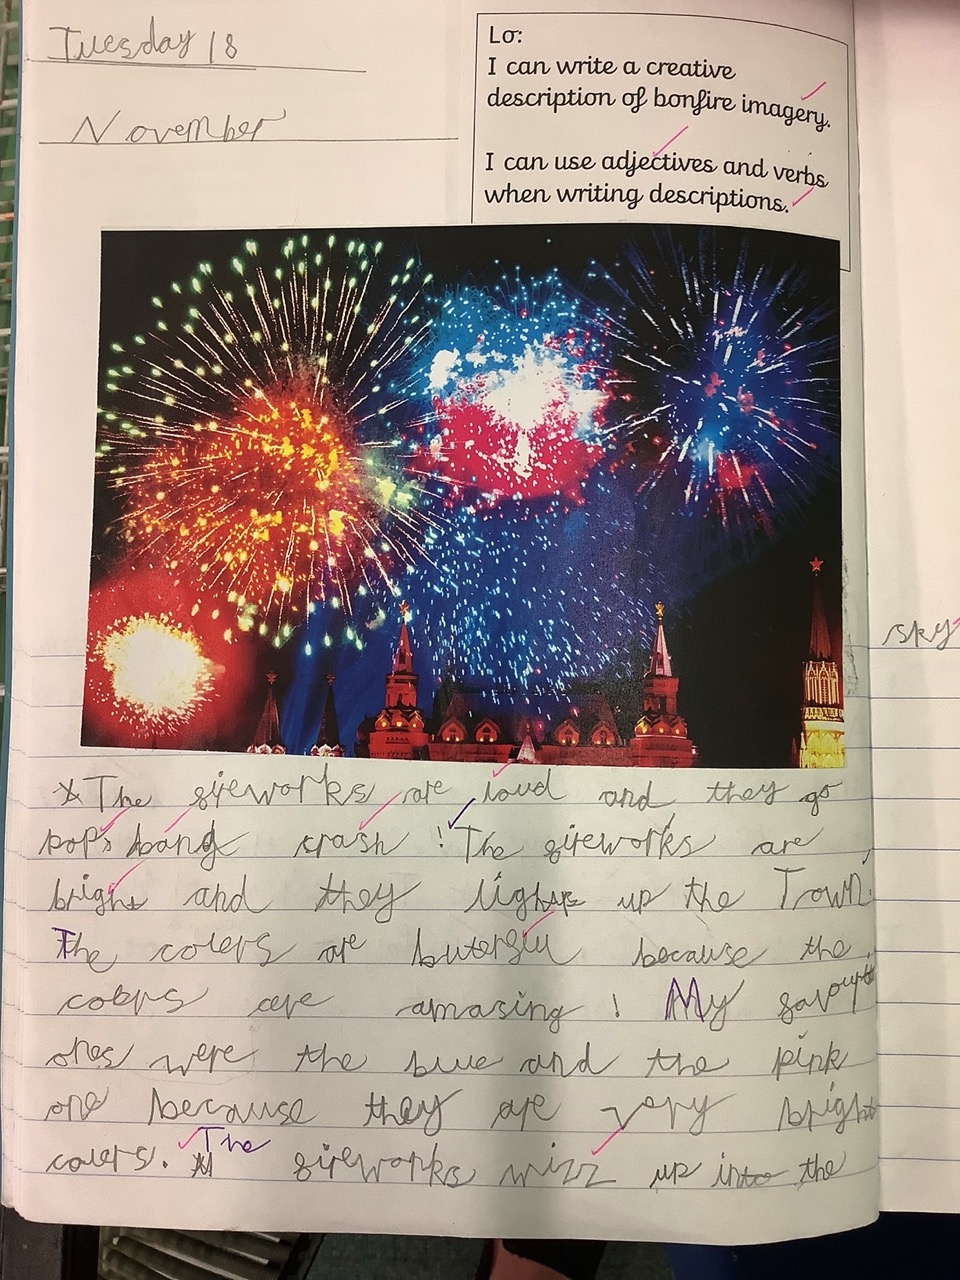 Tuesday 18
November
Lo:
I can write a creative
description of bonfire imagery.
I can use adjectives and verbs
when writing descriptions.
sky
The fireworks are loud and they go
pop, bang crash ! The fireworks are
bright and they lights up the Town.
The colers are butergiu because the
colers are amasing ! My favourit
ones were the blue and the pink
one because they are very bright
colers. The fireworks wizz up into the